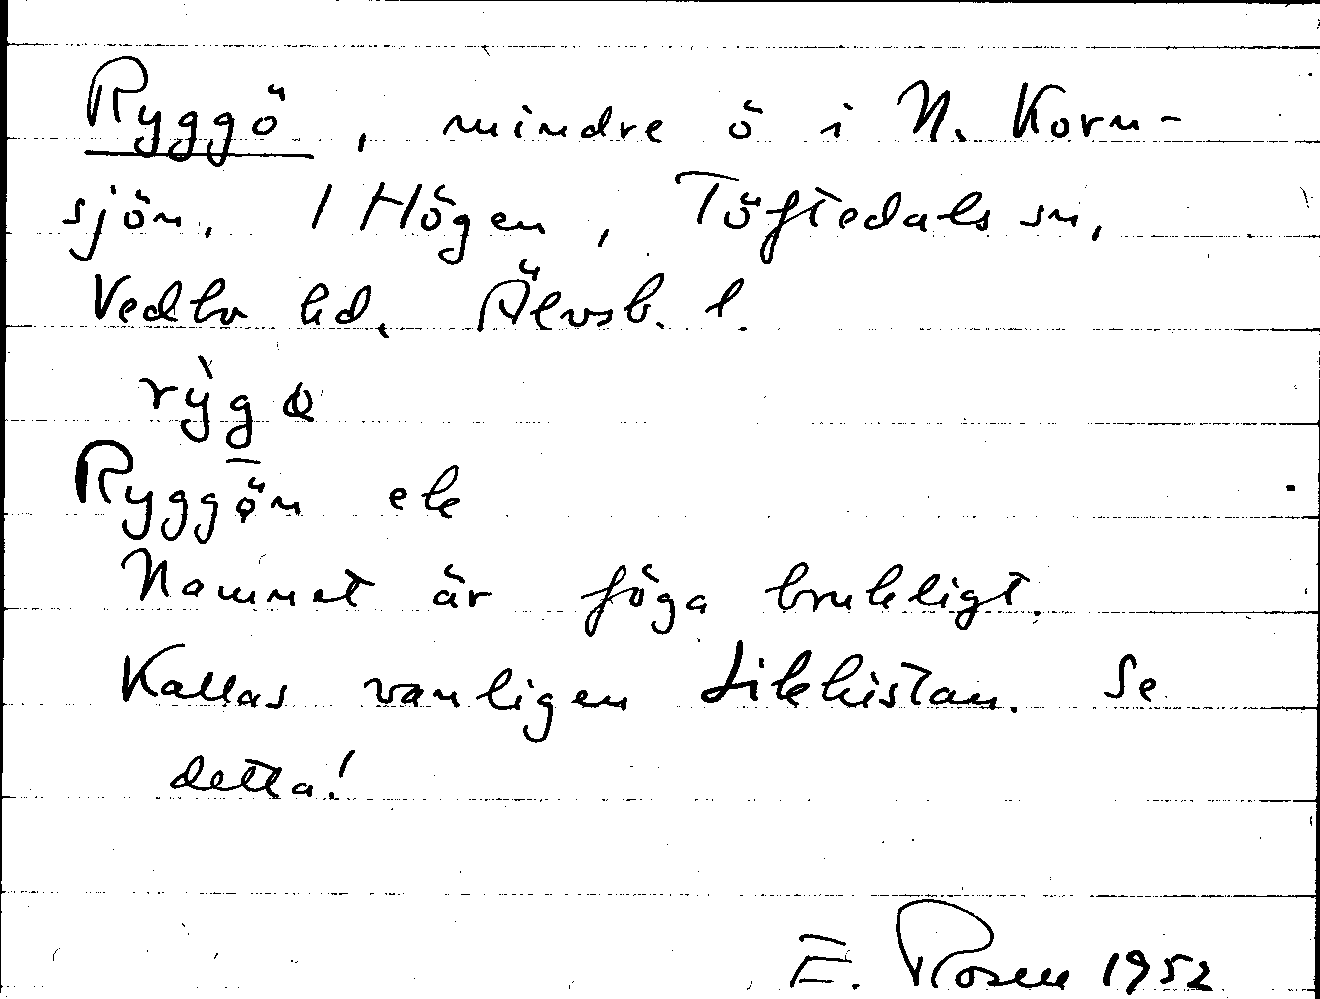 Ryggö, mindre ö i N. Korn-
sjön, 1 Högen, Töftedals sn,
Vedbo hd, Älvsb. l.
rỳg
Ryggön ek
Namnet är föga brukligt.
Kallas vanligen Likkistan. Se
detta!
E. Rosen 1952